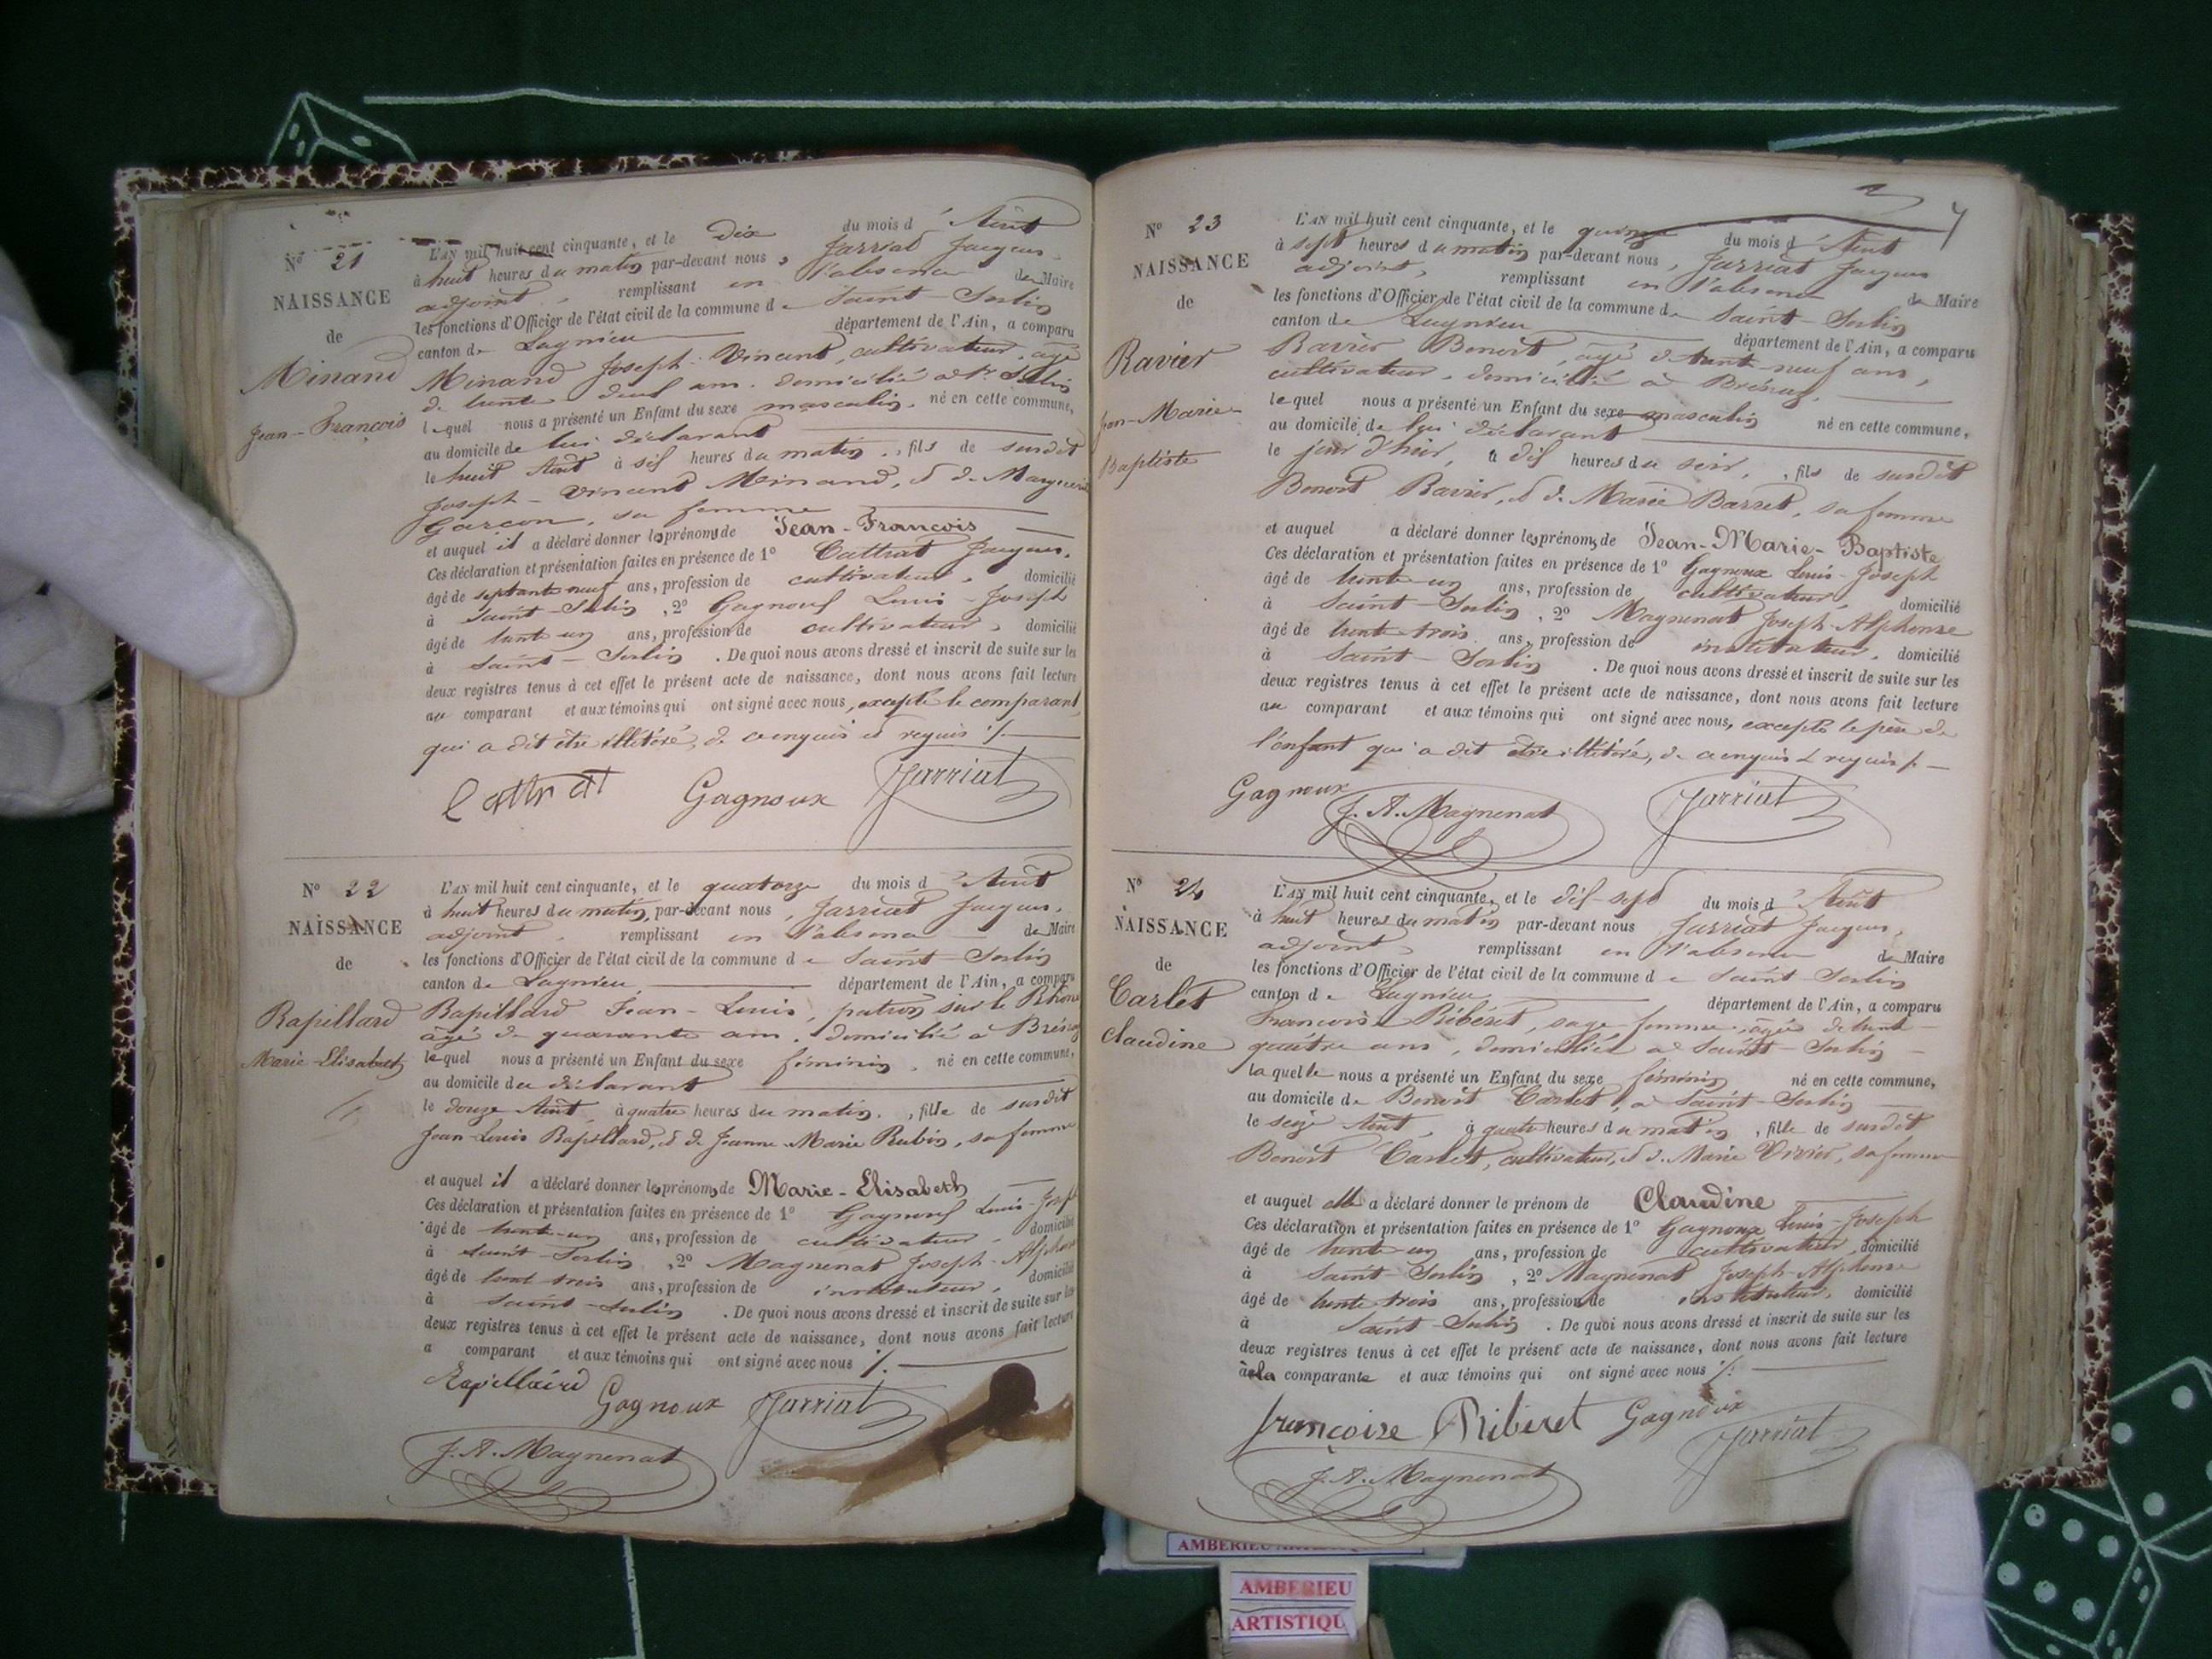 N° 21
NAISSANCE
de
Minand
Jean-François
L'AN mil huit cent cinquante, et le Dix du mois d'Août
à huit heures du matin par-devant nous, Jarriat Jacques,
adjoint, remplissant en l'absence du Maire
les fonctions d'Officier de l'état civil de la commune de Saint-Sorlin
canton de Lagnieu département de l'Ain, a comparu
Minand Joseph-Vincent, cultivateur, âgé
de trente deux ans, domicilié à St Sorlin
lequel nous a présenté un Enfant du sexe masculin, né en cette commune,
au domicile de lui déclarant
le huit Août à six heures du matin, fils de susdit
Joseph-Vincent Minand, et de Marguerite
Garçon, sa femme
et auquel il a déclaré donner les prénoms de Jean-François
Ces déclaration et présentation faites en présence de 1° Cattrat Jacques,
âgé de septante neuf ans, profession de cultivateur, domicilié
à Saint-Sorlin, 2° Gagnoux Louis-Joseph
âgé de trente un ans, profession de cultivateur, domicilié
à Saint-Sorlin. De quoi nous avons dressé et inscrit de suite sur les
deux registres tenus à cet effet le présent acte de naissance, dont nous avons fait lecture
au comparant et aux témoins qui ont signé avec nous, excepté le comparant,
qui a dit être illitéré, de ce enquis et requis ./.
Cattrat Gagnoux Jarriat
N° 22
NAISSANCE
de
Rapillard
Marie-Elisabeth
L'AN mil huit cent cinquante, et le quatorze du mois d'Août
à huit heures du matin, par-devant nous, Jarriat Jacques,
adjoint, remplissant en l'absence du Maire
les fonctions d'Officier de l'état civil de la commune de Saint-Sorlin
canton de Lagnieu, département de l'Ain, a comparu
Rapillard Jean-Louis, patron sur le Rhône
âgé de quarante ans, domicilié à Brénaz
lequel nous a présenté un Enfant du sexe féminin, né en cette commune,
au domicile du déclarant
le douze Août, à quatre heures du matin, fille de susdit
Jean-Louis Rapillard, et de Jeanne-Marie Rubin, sa femme
et auquel il a déclaré donner les prénoms de Marie-Elisabeth
Ces déclaration et présentation faites en présence de 1° Gagnoux Louis-Joseph
âgé de trente-un ans, profession de cultivateur, domicilié
à Saint-Sorlin, 2° Magnenat Joseph-Alphonse
âgé de trente trois ans, profession de instituteur, domicilié
à Saint-Sorlin. De quoi nous avons dressé et inscrit de suite sur les
deux registres tenus à cet effet le présent acte de naissance, dont nous avons fait lecture
a comparant et aux témoins qui ont signé avec nous ./.
Rapillard Gagnoux Jarriat
J. A. Magnenat
7
N° 23
NAISSANCE
de
Ravier
Jean-Marie-
Baptiste
L'AN mil huit cent cinquante, et le quinze du mois d'Août
à sept heures du matin par-devant nous, Jarriat Jacques
adjoint, remplissant en l'absence du Maire
les fonctions d'Officier de l'état civil de la commune de Saint-Sorlin
canton de Lagnieu département de l'Ain, a comparu
Ravier Benoît, âgé de trente-neuf ans,
cultivateur, domicilié à Brénaz,
lequel nous a présenté un Enfant du sexe masculin né en cette commune,
au domicile de lui déclarant
le jour d'hier, à dix heures du soir, fils de susdit
Benoît Ravier, et de Marie Barret, sa femme
et auquel a déclaré donner les prénoms de Jean-Marie-Baptiste
Ces déclaration et présentation faites en présence de 1° Gagnoux Louis-Joseph
âgé de trente-un ans, profession de cultivateur, domicilié
à Saint-Sorlin, 2° Magnenat Joseph-Alphonse
âgé de trente-trois ans, profession de instituteur, domicilié
à Saint-Sorlin. De quoi nous avons dressé et inscrit de suite sur les
deux registres tenus à cet effet le présent acte de naissance, dont nous avons fait lecture
au comparant et aux témoins qui ont signé avec nous, excepté le père de
l'enfant qui a dit être illitéré, de ce enquis & requis ./.
Gagnoux J. A. Magnenat Jarriat
N° 24
NAISSANCE
de
Carlet
Claudine
L'AN mil huit cent cinquante, et le dix-sept du mois d'Août
à huit heures du matin par-devant nous Jarriat Jacques,
adjoint, remplissant en l'absence du Maire
les fonctions d'Officier de l'état civil de la commune de Saint-Sorlin
canton de Lagnieu département de l'Ain, a comparu
Françoise Ribéret, sage femme, âgée de trente-
quatre ans, domiciliée à Saint-Sorlin
laquelle nous a présenté un Enfant du sexe féminin né en cette commune,
au domicile de Benoît Carlet, à Saint-Sorlin
le seize Août, à quatre heures du matin, fille de susdit
Benoît Carlet, cultivateur, et de Marie Vivier, sa femme
et auquel elle a déclaré donner le prénom de Claudine
Ces déclaration et présentation faites en présence de 1° Gagnoux Louis-Joseph
âgé de trente-un ans, profession de cultivateur, domicilié
à Saint-Sorlin, 2° Magnenat Joseph-Alphonse
âgé de trente trois ans, profession de instituteur, domicilié
à Saint-Sorlin. De quoi nous avons dressé et inscrit de suite sur les
deux registres tenus à cet effet le présent acte de naissance, dont nous avons fait lecture
à la comparante et aux témoins qui ont signé avec nous ./.
françoise Riberet Gagnoux
Jarriat
J. A. Magnenat
AMBERIEU ARTISTIQ
AMBERIEU
ARTISTIQU